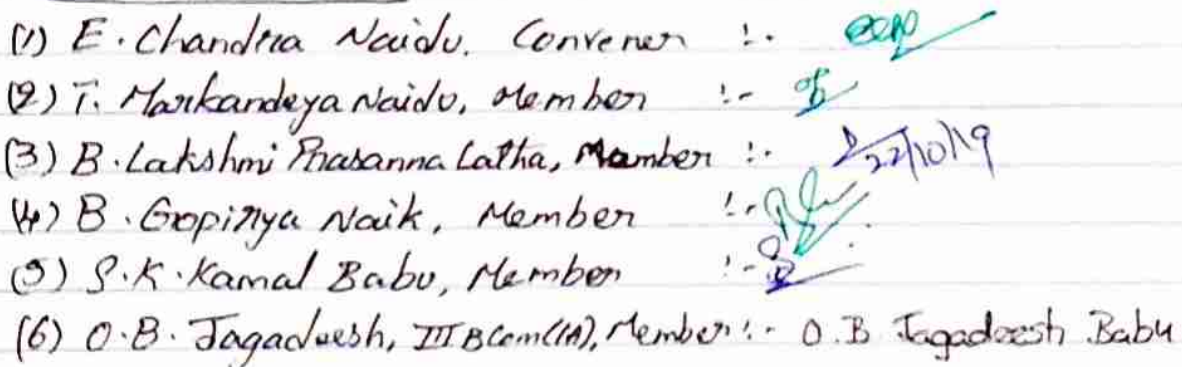 (1) E. Chandra Naidu. Convener :-
(2) T. Markandeya Naidu, Member :-
(3) B. Lakshmi Prasanna Latha, Member :- 22/10/19
(4) B. Gopinya Naik, Member :-
(5) S.K. Kamal Babu, Member :-
(6) O.B. Jagadeesh, III BCom(CA), Member :- O.B Jagadeesh Babu